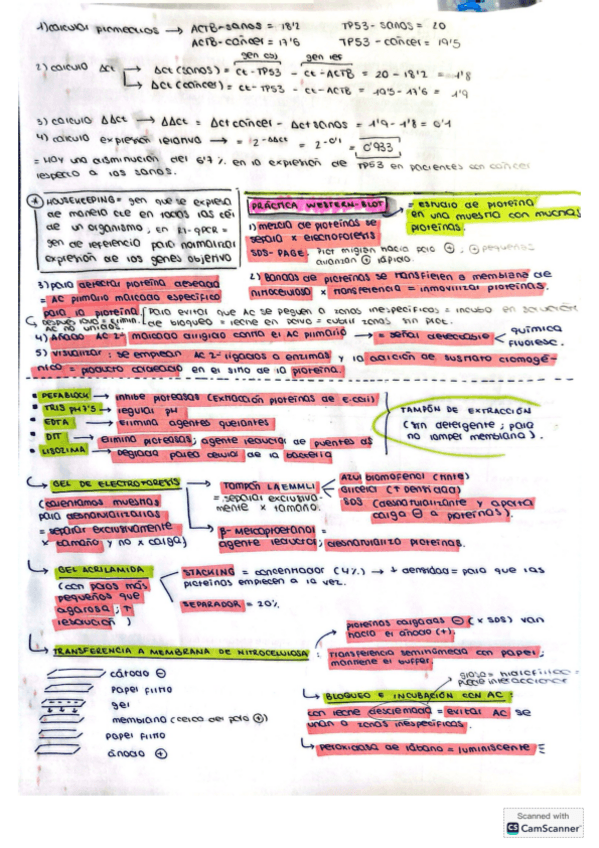 1) calcular promedios → ACTB-sanos = 18'2 TP53-sanos = 20
ACTB-cáncer = 17'6 TP53-cáncer = 19'5
gen obj gen ref
2) calculo Δct → Δct (sanos) = Ct-TP53 - Ct-ACTB = 20 - 18'2 = 1'8
→ Δct (cáncer) = Ct-TP53 - Ct-ACTB = 19'5 - 17'6 = 1'9
3) calculo ΔΔct → ΔΔct = Δct cáncer - Δct sanos = 1'9 - 1'8 = 0'1
4) calculo expresión relativa → = 2^-ΔΔct = 2^-0'1 = 0'933
= Hay una disminución del 6'7 % en la expresión de TP53 en pacientes con cáncer
respecto a los sanos.
* HOUSEKEEPING = gen que se expresa
de manera cte en todas las cél
de un organismo; en RT-qPCR =
gen de referencia para normalizar
expresión de los genes objetivo
PRÁCTICA WESTERN-BLOT = estudio de proteína
en una muestra con muchas
proteínas.
1) mezcla de proteínas se
separa x electroforesis
SDS-PAGE: Prot migran hacia polo +; + pequeñas
avanzan + rápido.
2) Bandas de proteínas se transfieren a membrana de
nitrocelulosa x transferencia = inmovilizar proteínas.
3) para detectar proteína deseada
= AC primario marcado específico
para la proteína.
Para evitar que AC se peguen a zonas inespecíficos = incubo en solución
de bloqueo = leche en polvo = cubrir zonas sin prot.
después lavo = elimin.
AC no unidos.
4) Añado AC 2º marcado dirigido contra el AC primario → = señal detectable química
fluoresc.
5) visualizar: se emplean AC 2º ligados a enzimas y la adición de sustrato cromogé-
nico = producto coloreado en el sitio de la proteína.
• PEFABLOCK → inhibe proteasas (extracción proteínas de e-coli)
• TRIS pH 7'5 → regular pH
• EDTA → elimina agentes quelantes
• DTT → elimina proteasas; agente reductor de puentes ds
• LISOZIMA → degrada pared celular de la bacteria
TAMPÓN DE EXTRACCIÓN
(sin detergente; para
no romper membrana).
GEL DE ELECTROFORESIS
(calentamos muestras
para desnaturalizarlas
= separar exclusivamente
x tamaño y no x carga)
Tampón LAEMMLI
= separar exclusiva-
mente x tamaño.
Azul bromofenol (tinte)
Glicerol (↑ densidad)
SDS (desnaturalizante y aporta
carga ⊖ a proteínas).
β-mercaptoetanol =
agente reductor; desnaturaliza proteínas.
GEL ACRILAMIDA
(con poros más
pequeños que
agarosa; ↑
resolución)
STACKING = concentrador (4%) → + densidad = para que las
proteínas empiecen a la vez.
SEPARADOR = 20%.
TRANSFERENCIA A MEMBRANA DE NITROCELULOSA:
proteínas cargadas ⊖ (x SDS) van
hacia el ánodo (+).
Transferencia semihúmeda con papel;
mantiene el buffer.
cátodo ⊖
papel filtro
gel
membrana (cerca del polo ⊕)
papel filtro
ánodo ⊕
BLOQUEO E INCUBACIÓN CON AC:
con leche desnatada = evitar AC se
unan a zonas inespecíficas.
peroxidasa de rábano = luminiscente
Scanned with
CS CamScanner